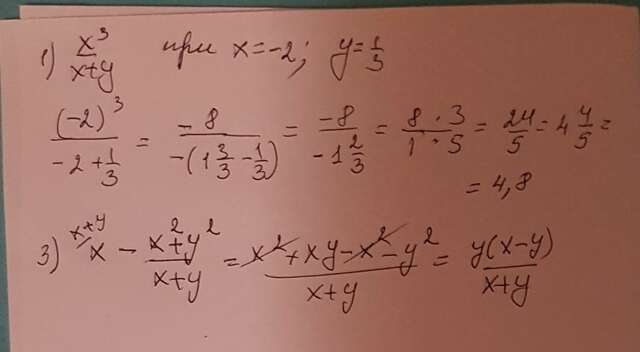 1) x³/(x+y) при x=-2; y=1/3
(-2)³/(-2+1/3) = -8/(-(1 3/3 - 1/3)) = -8/(-1 2/3) = (8·3)/(1·5) = 24/5 = 4 4/5 =
= 4,8
3) x^(x+y) - (x²+y²)/(x+y) = (x²+xy-x²-y²)/(x+y) = y(x-y)/(x+y)